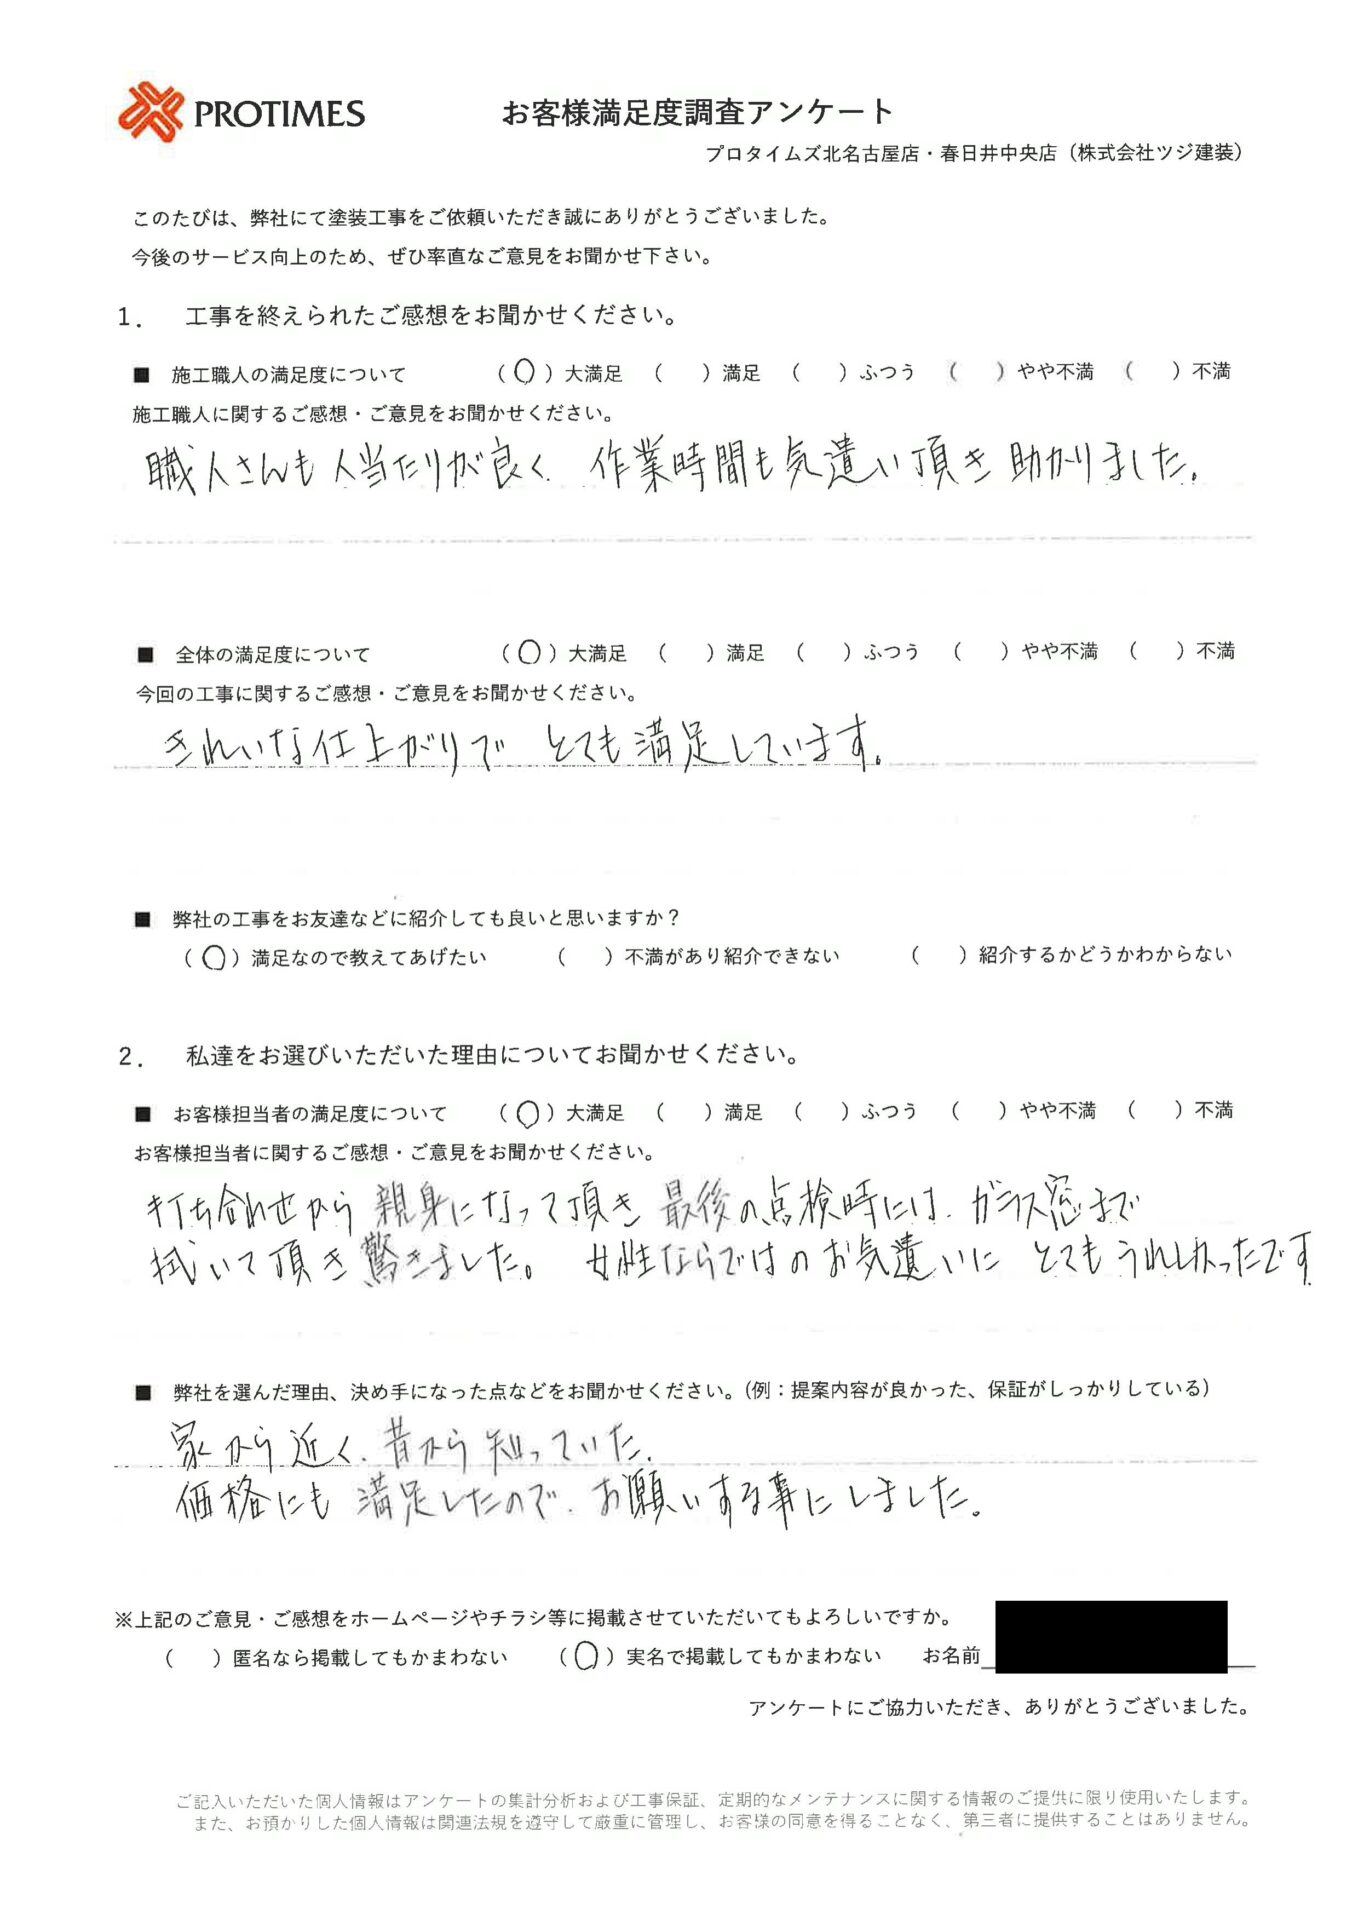 PROTIMES お客様満足度調査アンケート
プロタイムズ北名古屋店・春日井中央店（株式会社ツジ建装）
このたびは、弊社にて塗装工事をご依頼いただき誠にありがとうございました。
今後のサービス向上のため、ぜひ率直なご意見をお聞かせ下さい。
1. 工事を終えられたご感想をお聞かせください。
■ 施工職人の満足度について （○）大満足 （ ）満足 （ ）ふつう （ ）やや不満 （ ）不満
施工職人に関するご感想・ご意見をお聞かせください。
職人さんも人当たりが良く、作業時間も気遣い頂き助かりました。
■ 全体の満足度について （○）大満足 （ ）満足 （ ）ふつう （ ）やや不満 （ ）不満
今回の工事に関するご感想・ご意見をお聞かせください。
きれいな仕上がりで とても満足しています。
■ 弊社の工事をお友達などに紹介しても良いと思いますか？
（○）満足なので教えてあげたい （ ）不満があり紹介できない （ ）紹介するかどうかわからない
2. 私達をお選びいただいた理由についてお聞かせください。
■ お客様担当者の満足度について （○）大満足 （ ）満足 （ ）ふつう （ ）やや不満 （ ）不満
お客様担当者に関するご感想・ご意見をお聞かせください。
打ち合わせから親身になって頂き最後の点検時には、ガラス窓まで
拭いて頂き驚きました。 女性ならではのお気遣いに とてもうれしかったです
■ 弊社を選んだ理由、決め手になった点などをお聞かせください。（例：提案内容が良かった、保証がしっかりしている）
家から近く、昔から知っていた。
価格にも満足したので、お願いする事にしました。
※上記のご意見・ご感想をホームページやチラシ等に掲載させていただいてもよろしいですか。
（ ）匿名なら掲載してもかまわない （○）実名で掲載してもかまわない お名前
アンケートにご協力いただき、ありがとうございました。
ご記入いただいた個人情報はアンケートの集計分析および工事保証、定期的なメンテナンスに関する情報のご提供に限り使用いたします。
また、お預かりした個人情報は関連法規を遵守して厳重に管理し、お客様の同意を得ることなく、第三者に提供することはありません。